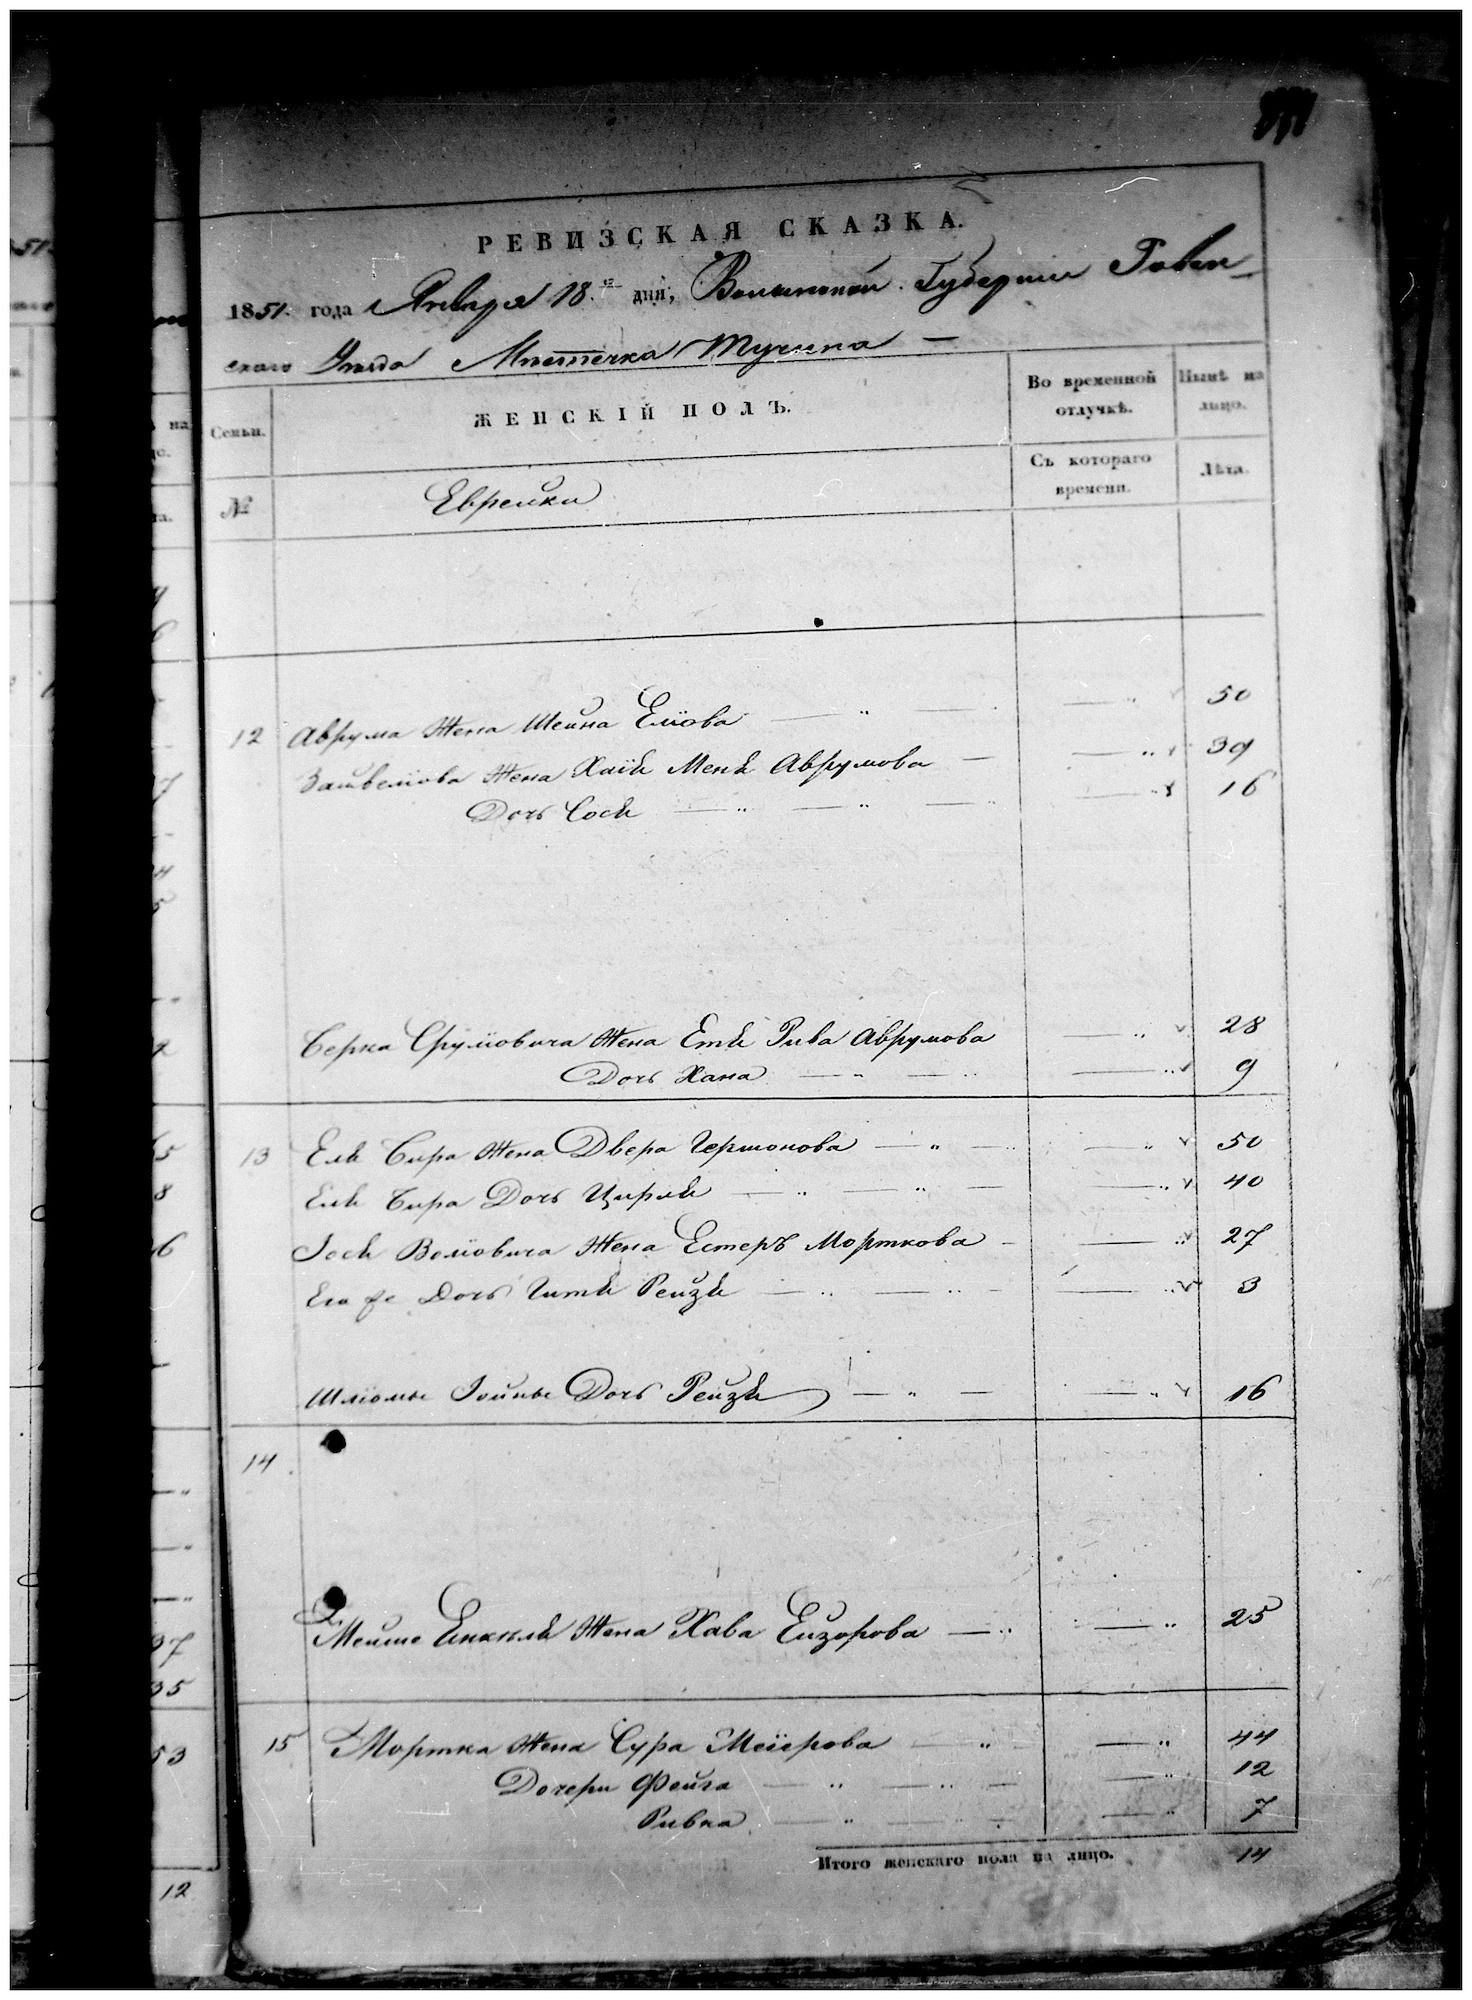 РЕВИЗСКАЯ СКАЗКА.
1851. года Января 18.го дня, Волынской Губернии Ровен-
скаго Уѣзда Мѣстечка Тучина —
Семьи. ЖЕНСКІЙ ПОЛЪ. Во временной отлучкѣ. Нынѣ на лицо.
№ Еврейки Съ котораго времени. Лѣта.
12 Аврума Жена Шейна Еліова 50
Зайвеліова Жена Хаіѣ Менѣ Аврумова 39
Дочь Сосѣ 16
Берка Сруліовича Жена Еткѣ Рива Аврумова 28
Дочь Хана 9
13 Елѣ Бира Жена Двера Гершонова 50
Елѣ Бира Дочь Цирлѣ 40
Іосѣ Воліовича Жена Естеръ Морткова 27
Его же Дочь Гиткѣ Рейзѣ 3
Шліомы Іойны Дочь Рейзѣ 16
14
Мейше Енкилѣ Жена Хава Ейзорова 25
15 Мортка Жена Сура Меіерова 44
Дочери Фейга 12
Ривка 7
Итого женскаго пола на лицо. 14
12